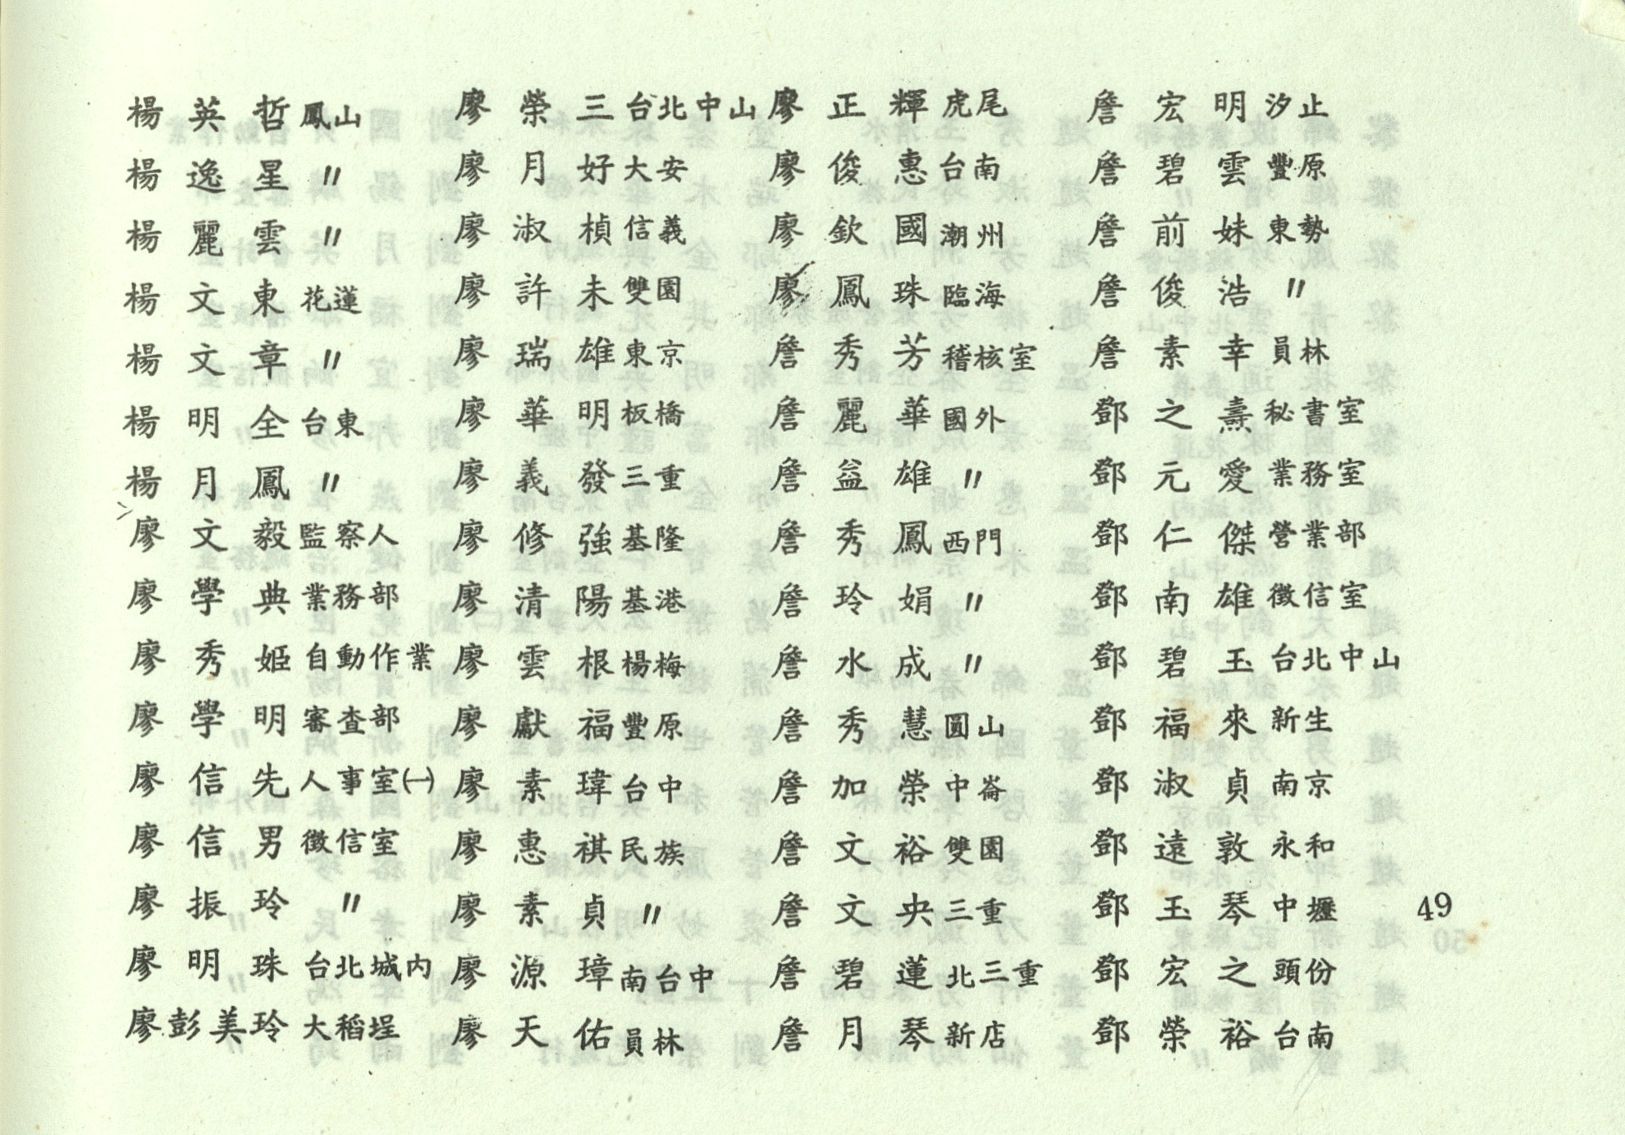 楊英哲鳳山
楊逸星〃
楊麗雲〃
楊文東花蓮
楊文章〃
楊明全台東
楊月鳳〃
廖文毅監察人
廖學典業務部
廖秀姬自動作業
廖學明審查部
廖信先人事室㈠
廖信男徵信室
廖振玲〃
廖明珠台北城內
廖彭美玲大稻埕
廖榮三台北中山
廖月好大安
廖淑楨信義
廖許未雙園
廖瑞雄東京
廖華明板橋
廖義發三重
廖修強基隆
廖清陽基港
廖雲根楊梅
廖獻福豐原
廖素瑋台中
廖惠祺民族
廖素貞〃
廖源璋南台中
廖天佑員林
廖正輝虎尾
廖俊惠台南
廖欽國潮州
廖鳳珠臨海
詹秀芳稽核室
詹麗華國外
詹益雄〃
詹秀鳳西門
詹玲娟〃
詹水成〃
詹秀慧圓山
詹加榮中崙
詹文裕雙園
詹文央三重
詹碧蓮北三重
詹月琴新店
詹宏明汐止
詹碧雲豐原
詹前妹東勢
詹俊浩〃
詹素幸員林
鄧之燾秘書室
鄧元愛業務室
鄧仁傑營業部
鄧南雄徵信室
鄧碧玉台北中山
鄧福來新生
鄧淑貞南京
鄧遠敦永和
鄧玉琴中壢
鄧宏之頭份
鄧榮裕台南
49